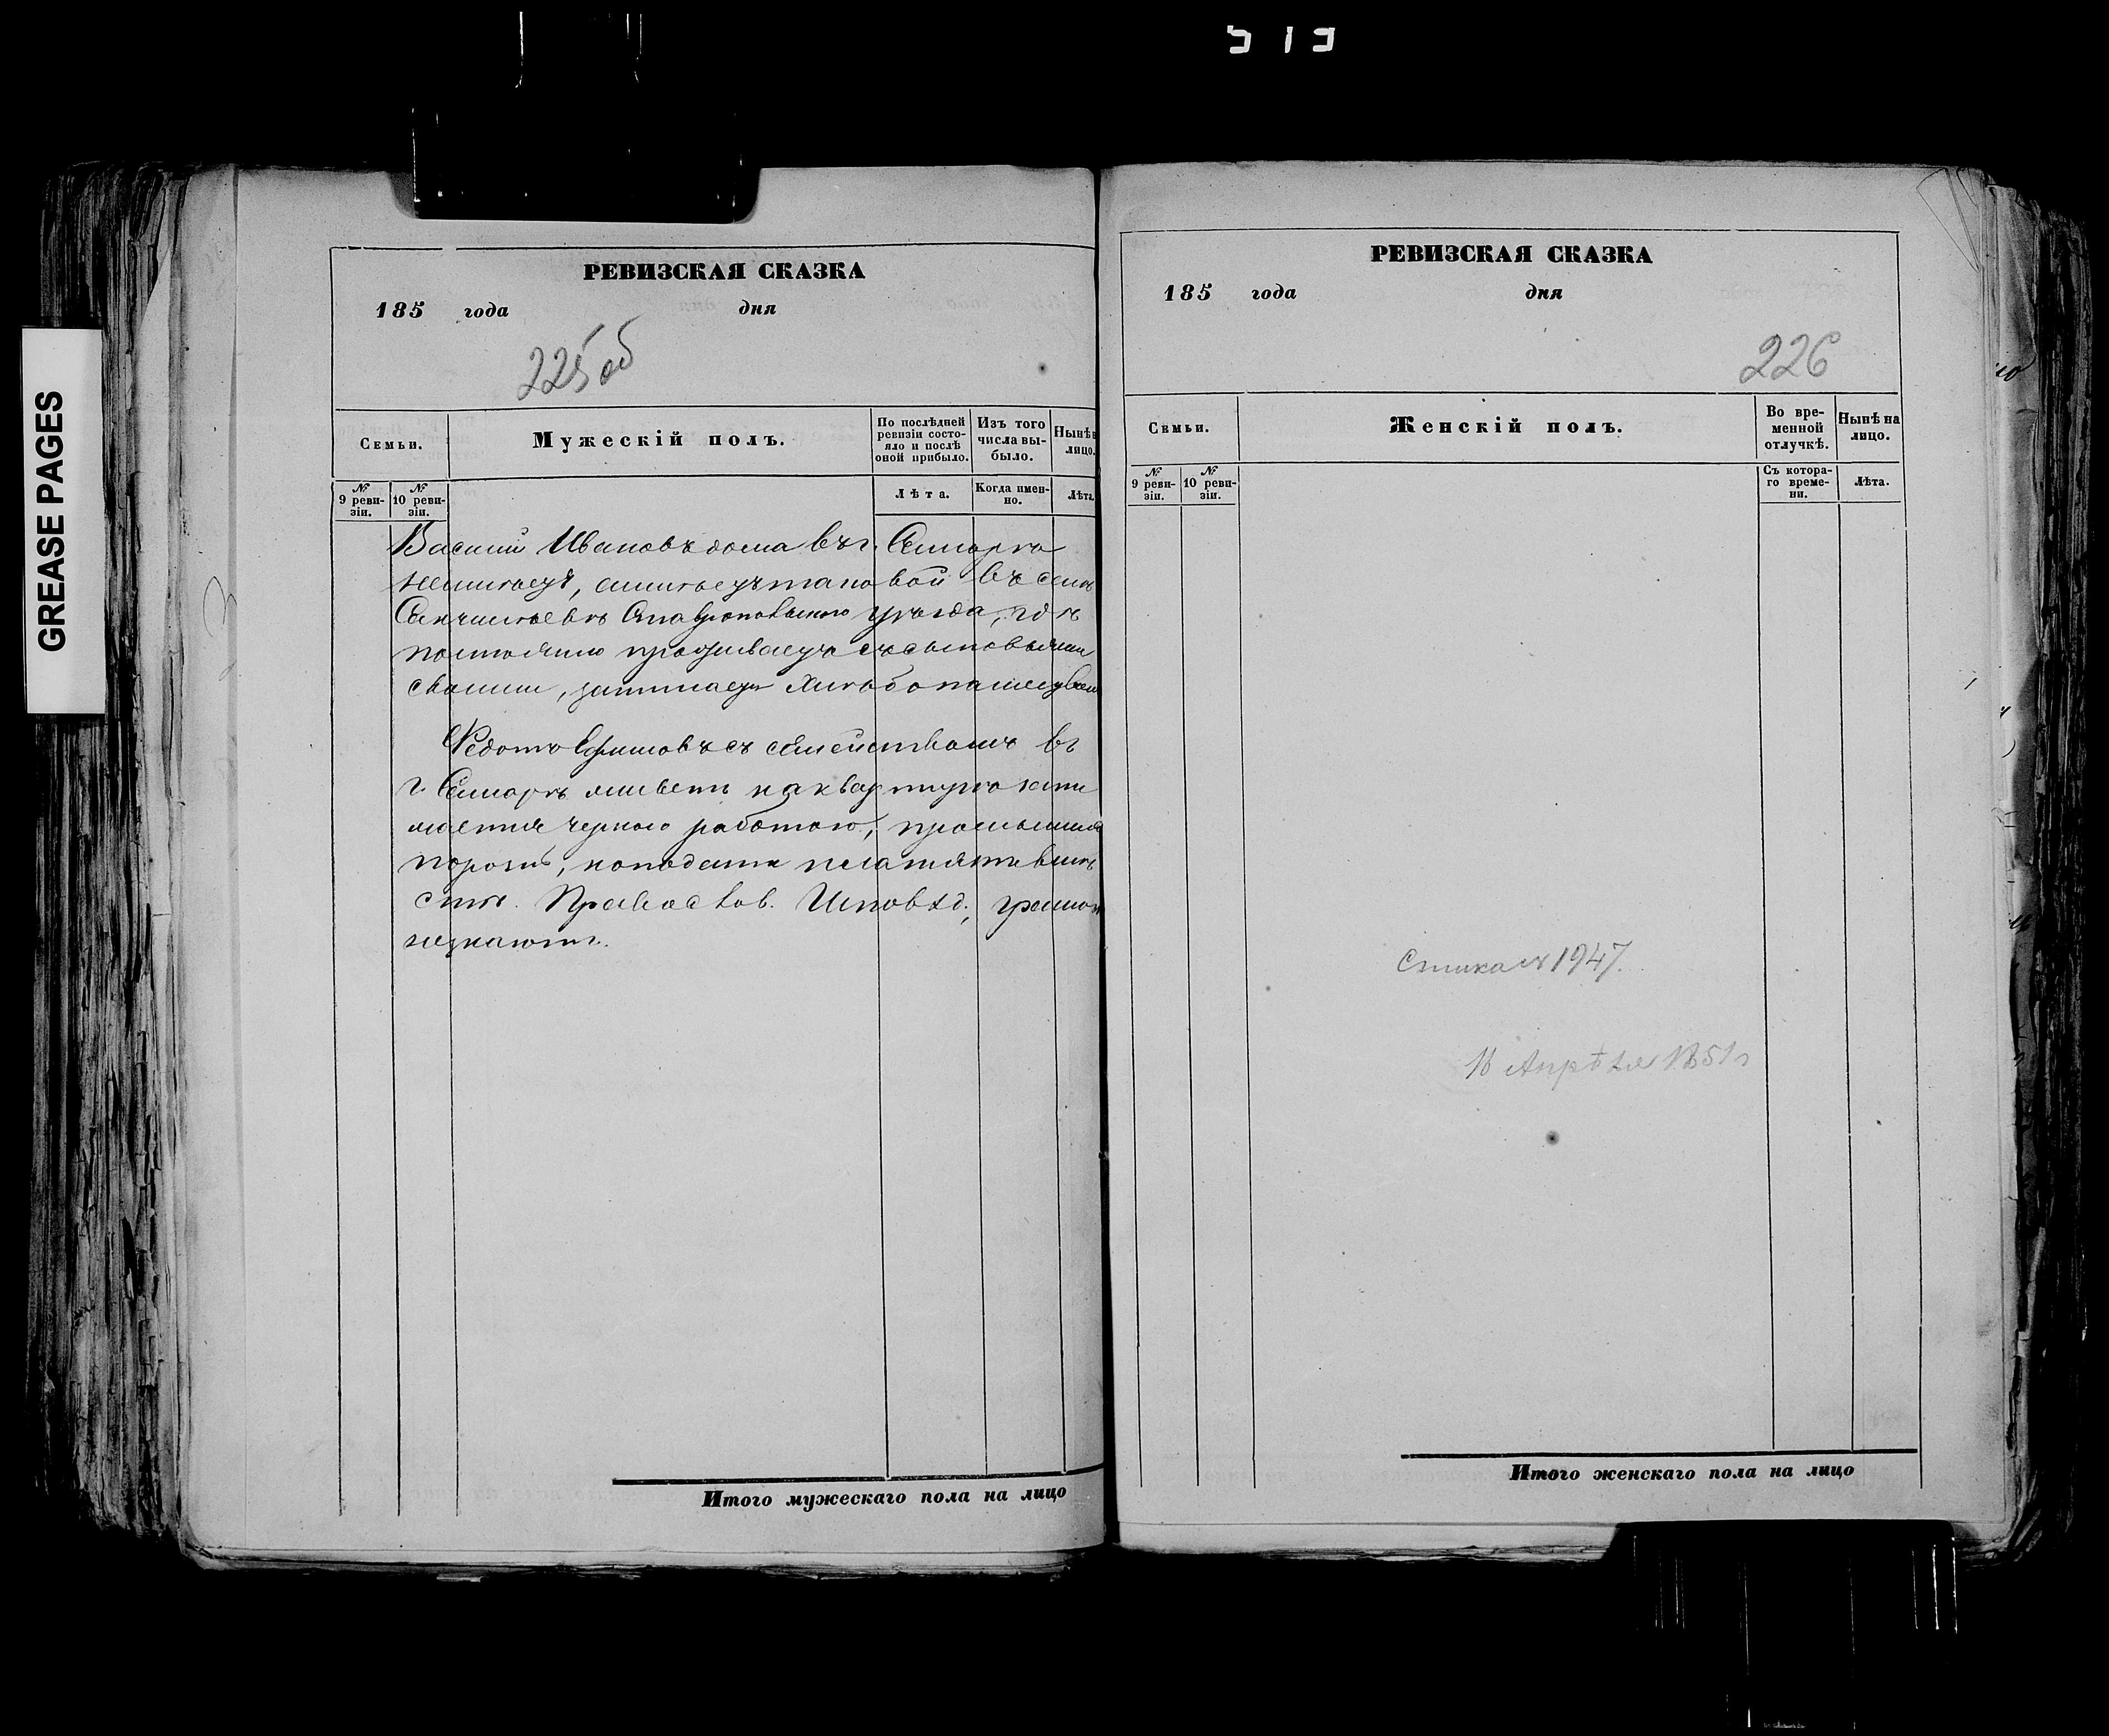 513
GREASE PAGES
РЕВИЗСКАЯ СКАЗКА
185 года дня
225 об
Семьи.
Мужескій полъ.
По послѣдней ревизіи состояло и послѣ оной прибыло.
Изъ того числа выбыло.
Нынѣ лицо.
№ 9 ревизіи.
№ 10 ревизіи.
Лѣта.
Когда именно.
Лѣта
Василій Ивановъ дома въ г. Самарѣ
неимѣетъ, имѣетъ таковой въ селѣ
Ставропольскаго уѣзда, гдѣ
постоянно проживаетъ съ сыновьями
своими, хлѣбопашеством
Федотъ Ефимовъ съ семействомъ въ
г. Самарѣ живетъ на квартирѣ зани
мается черною работою,
порознь, но подати платятъ вмѣ
стѣ. Православ. Исповѣд., грамот
незнаютъ.
РЕВИЗСКАЯ СКАЗКА
185 года дня
226
Семьи.
Женскій полъ.
Во временной отлучкѣ.
Нынѣ на лицо.
№ 9 ревизіи.
№ 10 ревизіи.
Съ котораго времени.
Лѣта.
1947.
16 Апрѣля 1851 г
Итого мужескаго пола на лицо
Итого женскаго пола на лицо